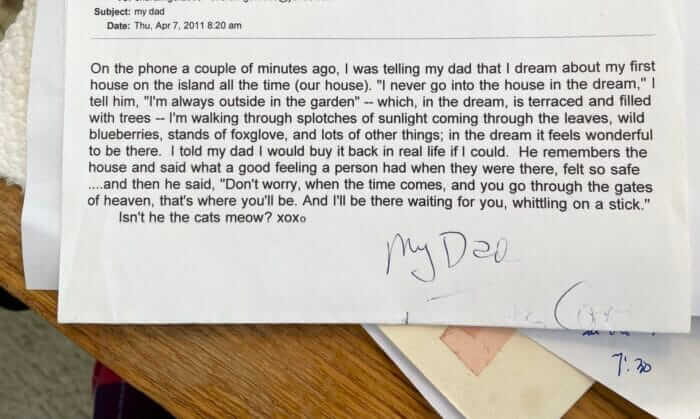 Subject: my dad
Date: Thu, Apr 7, 2011 8:20 am
On the phone a couple of minutes ago, I was telling my dad that I dream about my first
house on the island all the time (our house). "I never go into the house in the dream," I
tell him, "I'm always outside in the garden" -- which, in the dream, is terraced and filled
with trees -- I'm walking through splotches of sunlight coming through the leaves, wild
blueberries, stands of foxglove, and lots of other things; in the dream it feels wonderful
to be there. I told my dad I would buy it back in real life if I could. He remembers the
house and said what a good feeling a person had when they were there, felt so safe
....and then he said, "Don't worry, when the time comes, and you go through the gates
of heaven, that's where you'll be. And I'll be there waiting for you, whittling on a stick."
Isn't he the cats meow? xoxo
My Dad
7:30